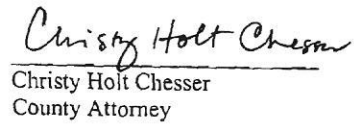 Christy Holt Chesser
Christy Holt Chesser
County Attorney